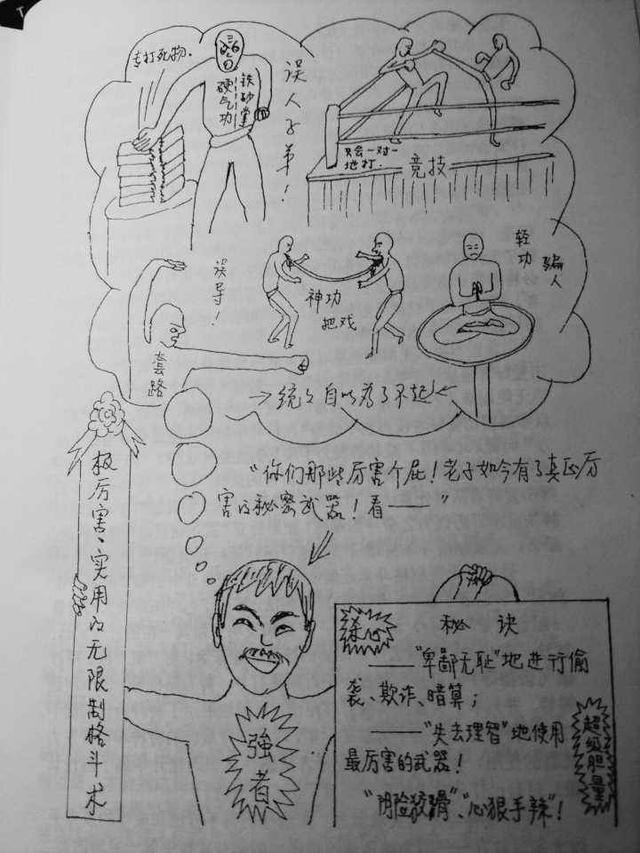 专打死物.
硬气功
铁砂掌
误人子弟！
只会一对一
地打.
竞技
误导！
套路
神功
把戏
轻功
骗人
→统统自以为了不起！←
“你们那些厉害个屁！老子如今有了真正厉
害的秘密武器！看——”
极厉害、实用的无限制格斗术
強者
秘诀
——“卑鄙无耻”地进行偷
袭、欺诈、暗算；
——“失去理智”地使用
最厉害的武器！
“阴险狡猾”、“心狠手辣”！
超级胆量